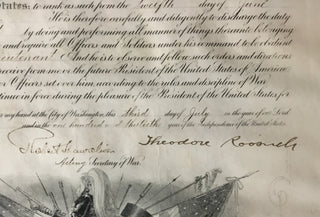 States: to rank as such from the Twelfth day of June
He is therefore carefully and diligently to discharge the duty
by doing and performing all manner of things thereunto belonging
and require all Officers and Soldiers under his command to be obedient
Lieutenant. And he is to observe and follow such orders and directions
receive from me the future President of the United States of America
Officers set over him, according to the rules and discipline of War
tinue in force during the pleasure of the President of the United States for
my hand at the City of Washington, this third day of July in the year of our Lord
under the one hundred & thirtieth year of the Independence of the United States.
Theodore Roosevelt
Acting Secretary of War